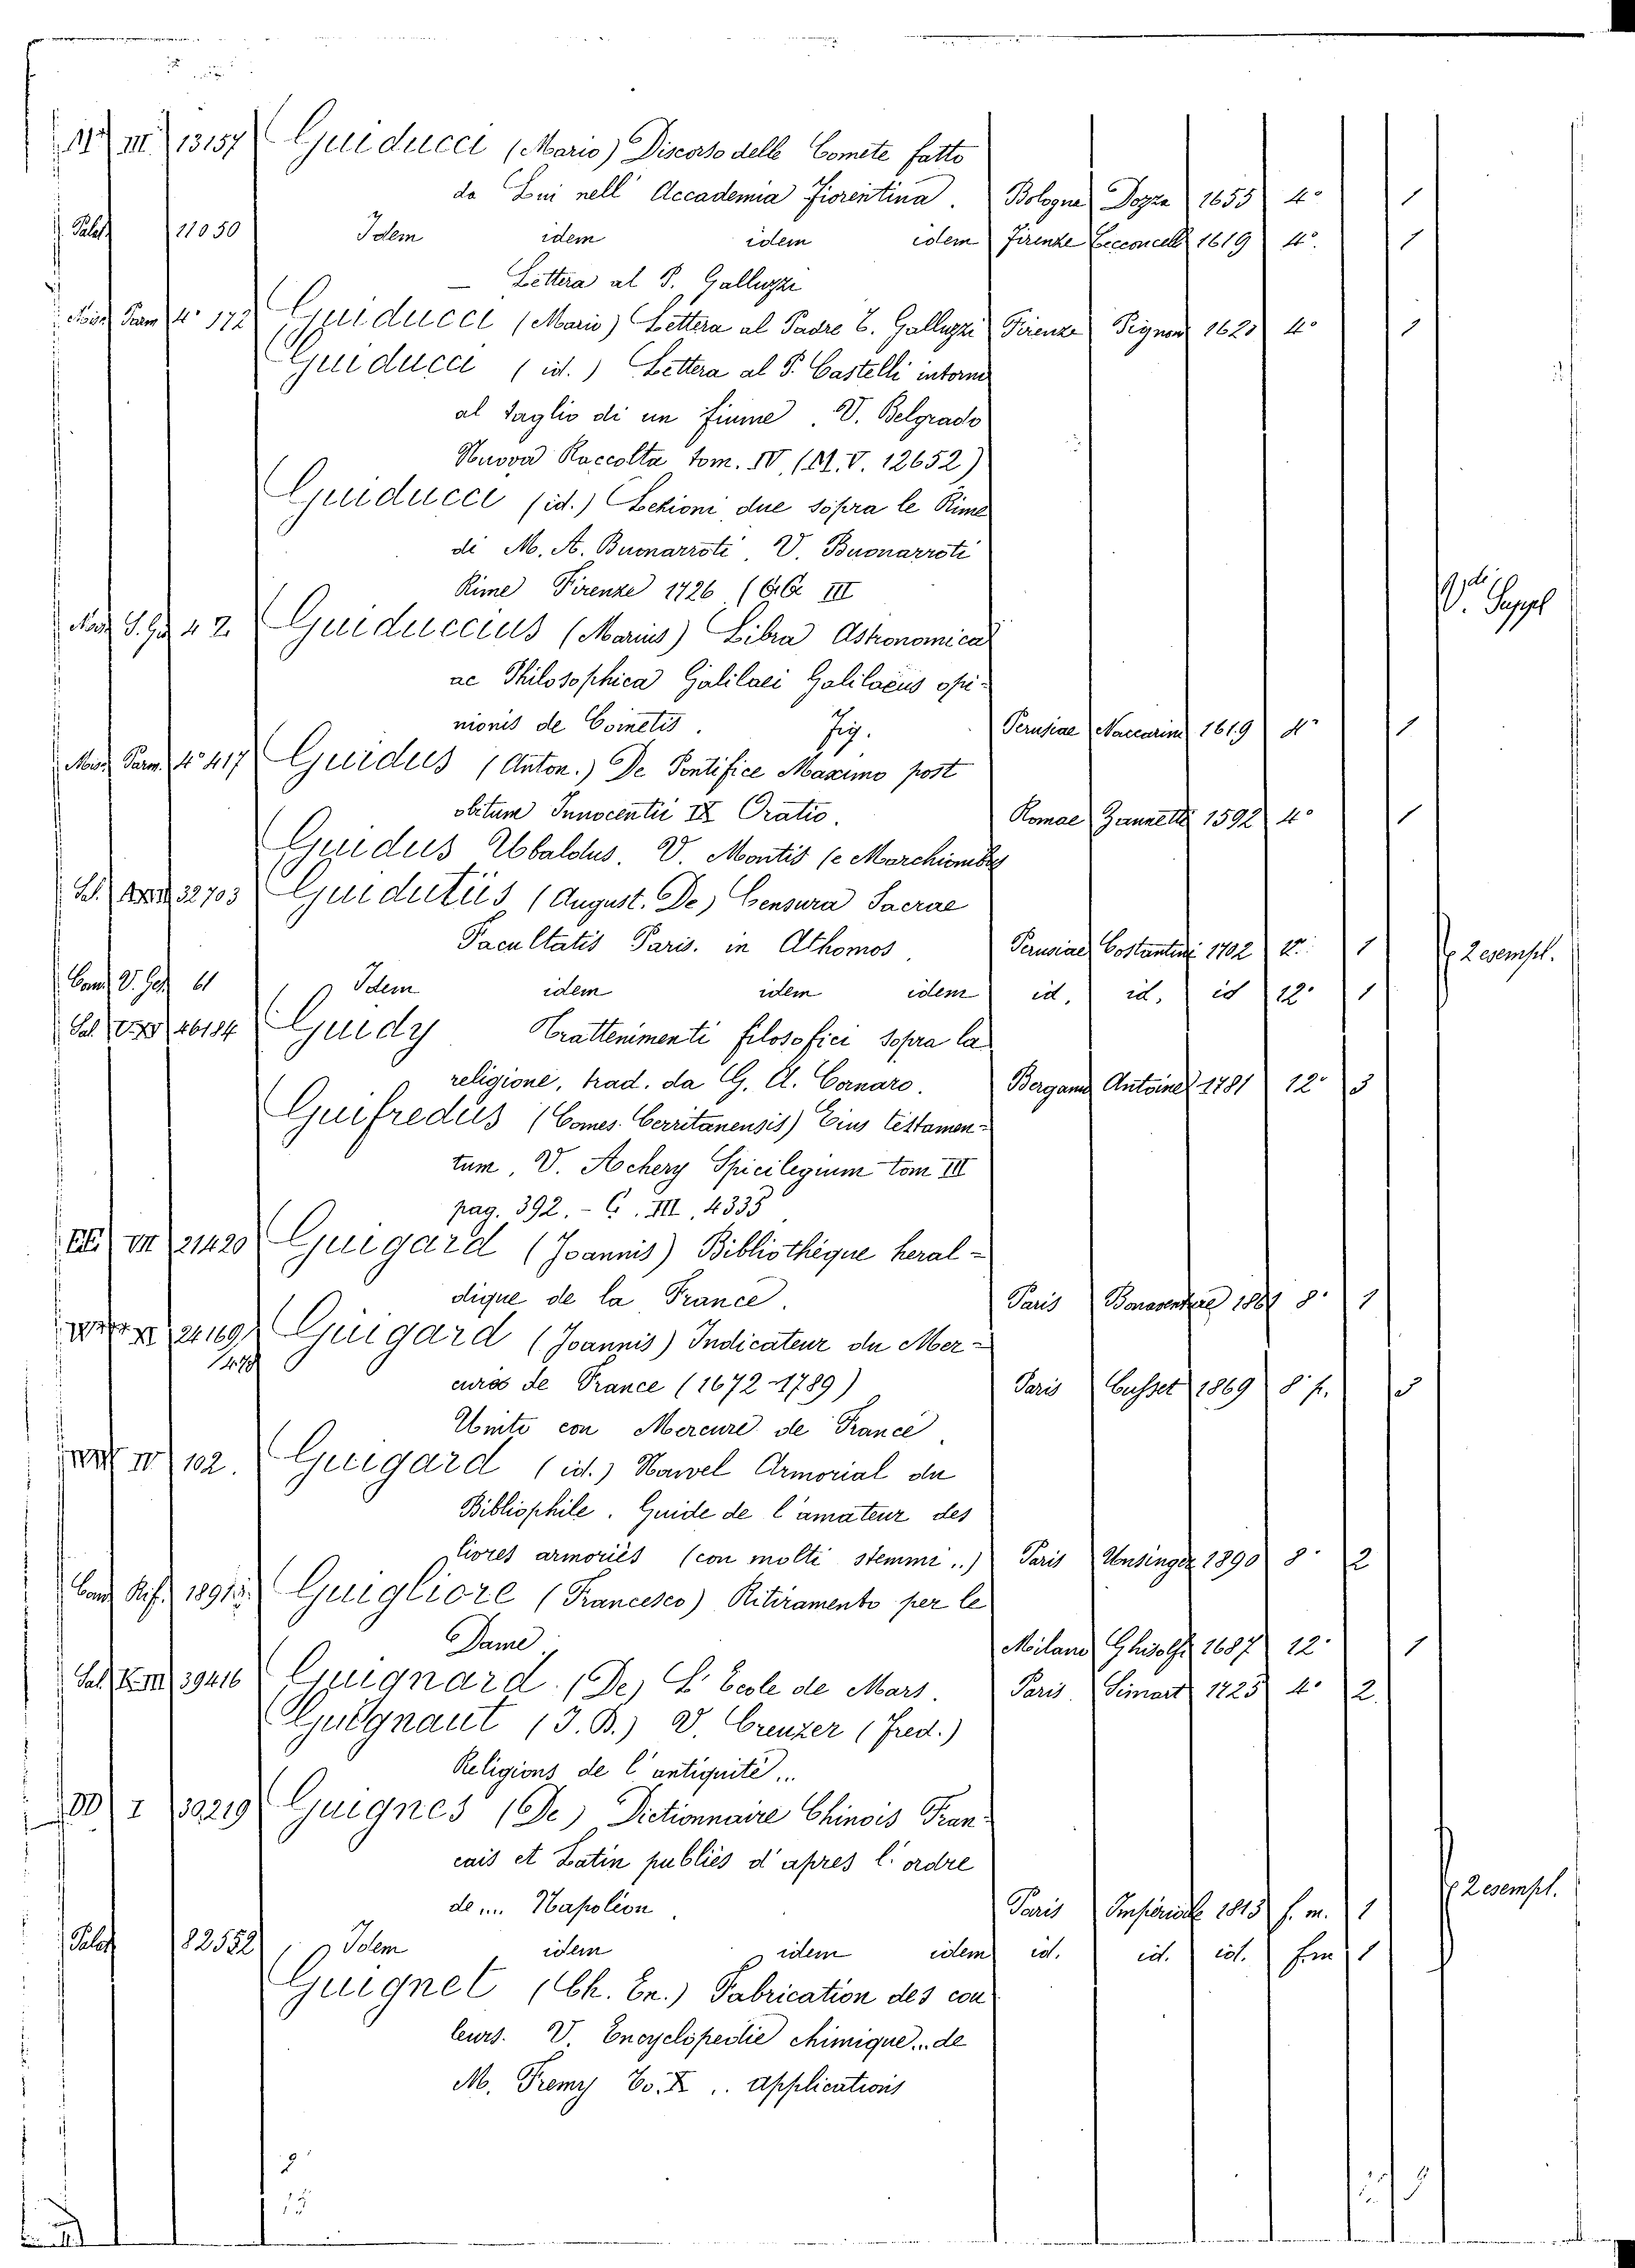 III 13157 Guiducci (Mario) Discorso delle Comete fatto
da Lui nell' Accademia Fiorentina. Bologna Dozza 1655 4° 1
Palat 11050 Idem idem idem idem Firenze Cecconcelli 1619 4°. 1
— Lettera al P. Galluzzi
Misc. Parm 4° 172 Guiducci (Mario) Lettera al Padre T. Galluzzi Firenze Pignoni 4° 1
Guiducci (id.) Lettera al P. Castelli intorno
al taglio di un fiume. V. Belgrado
Nuova Raccolta tom. IV. V. 12652)
Guiducci (id.) Lezioni due sopra le Rime
di M. A. Buonarroti V. Buonarroti
Rime Firenze 1726 III
V. Suppl
42 Guiduccius (Marius) Libra Astronomica
ac Philosophica Galilaei Galilaeus opi-
nionis de Cometis. Fig. Perusiae Naccarini 1619 4° 1
Misc. Parm. 4° 417 Guidus (Anton.) De Pontifice Maximo post
obitum Innocentii IX Oratio. Romae Zannetti 1592 4° 1
Guidus Ubaldus. V. Montis (e Marchionibus
Sal. 32703 Guidutius (August. De) Censura Sacrae
Facultatis Paris. in Athomos. Perusiae Costantini 1702 1 2 esempl.
61 Idem idem idem idem id. id. id 12° 1
Sal. 46184 Guidy Trattenimenti filosofici sopra la
religione, trad. da G. A. Cornaro. Bergamo Antoine 1781 12° 3
Guifredus (Comes Cerritanensis) Eius testamen-
tum, V. Achery Spicilegium tom III
pag. 392. - G. III. 4335
VII 21420 Guigard (Joannis) Bibliothèque heral-
dique de la France. Paris Bonaventure 8° 1
24169 Guigard (Joannis) Indicateur du Mer-
cure de France (1672-1789) Paris Cusset 1869 8° 3
Unito con Mercure de France
IV 102. Guigard (id.) Nouvel Armorial du
Bibliophile. Guide de l'amateur des
livres armoriés (con molti stemmi..) Paris Unsinger 1890 8° 2
Guigliore (Francesco) Ritiramento per le
Dame. Milano Ghisolfi 1687 12° 1
Sal 39416 Guignard (De) L'École de Mars. Paris. Simart 1725 4° 2.
Guignaut (J. B.) V. Creuzer (Fred.)
Religions de l'antiquité...
I 30219 Guignes (De) Dictionnaire Chinois Fran-
cais et Latin publiés d'apres l'ordre
de.... Napoléon. Paris Imperiale 1813 f. m. 1 2 esempl.
Palat 82552 Idem idem idem idem id. id. id. fm 1
Guignet (Ch. Er.) Fabrication des cou
leurs. V. Encyclopedie chimique... de
M. Fremy To. X .. applications